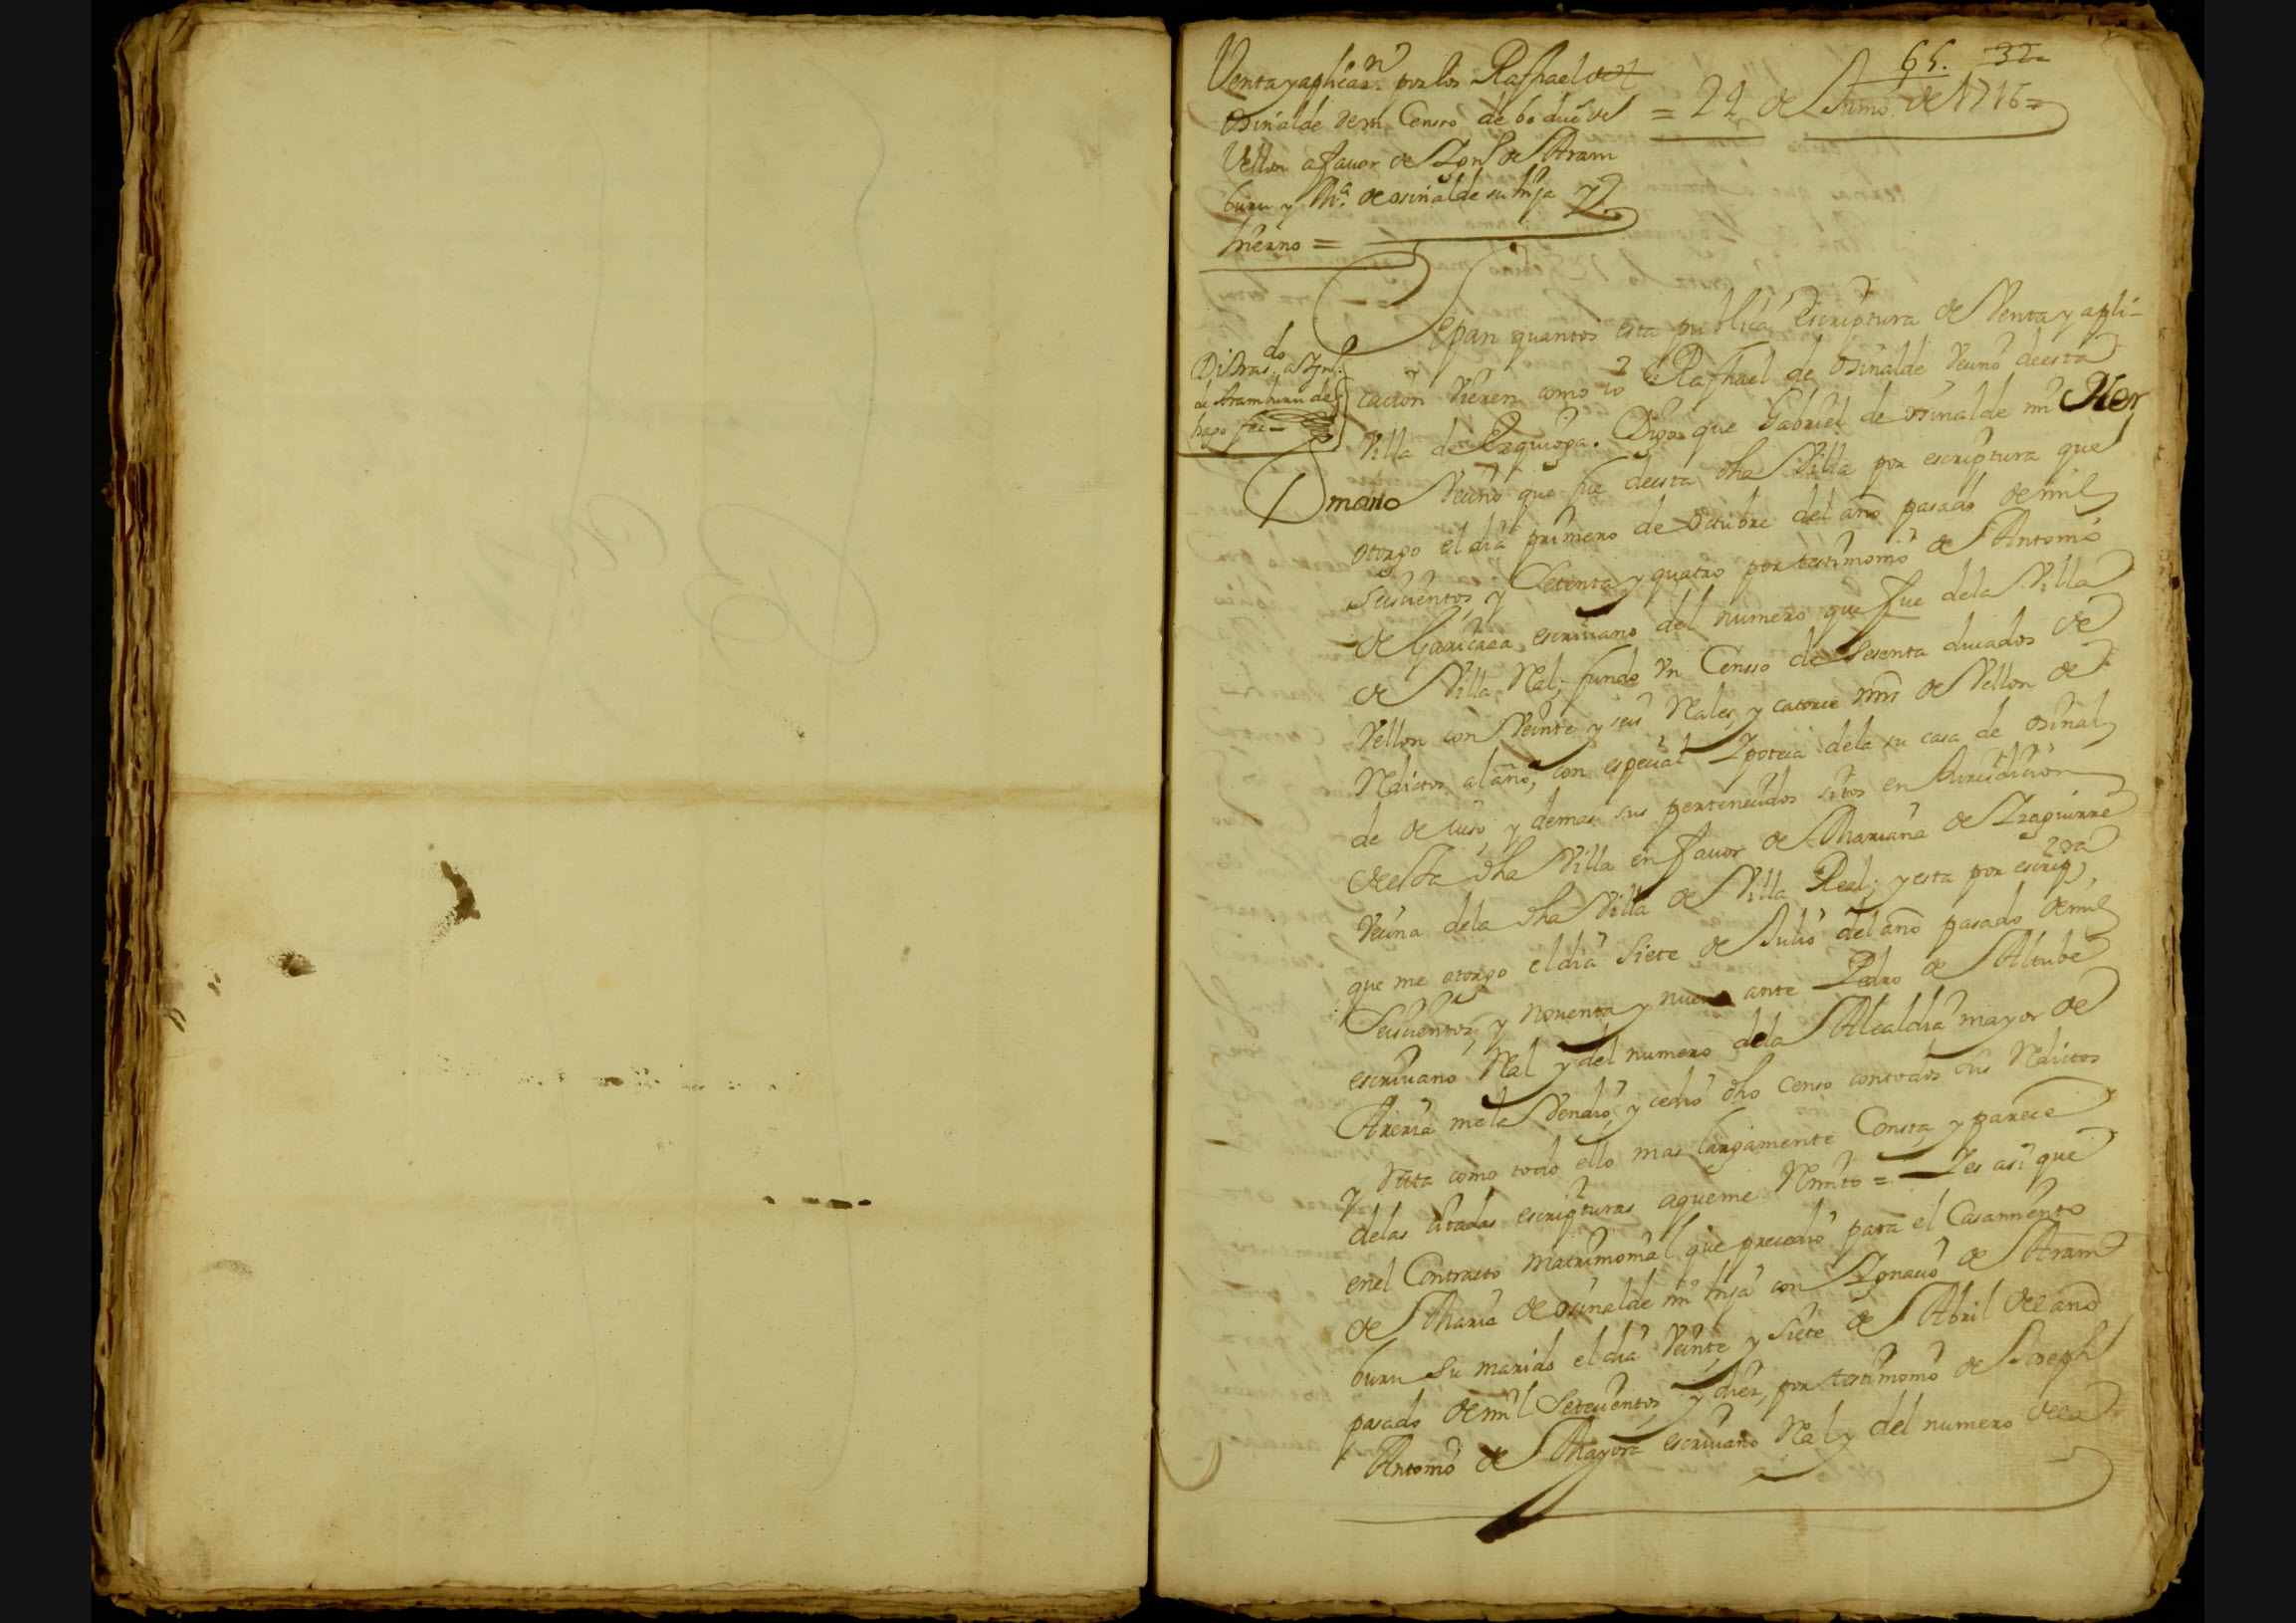 65. 32
Venta y aplicaz.n por los Raphael de
Osinalde de un Censso de 60 duc.s de
Vellon a fauor de Ign.o de Aram
buru y M.a de osinalde su hija y
hierno =
= 24 de Junio de 1716 =
Sepan quantos esta publica escriptura de Venta y apli-
cacion Vieren como io Raphael de Osinalde Vecino de esta
Villa de Ezquioga. Digo que Gabriel de Osinalde mi Her
mano Vecino que fue de esta dha Villa por escriptura que
otorgo el dia primero de octubre del año pasado de mil
Seiscientos, y Setenta y quatro por testimonio de Antonio
de Garicaza escriuano del numero que fue dela Villa
de Villa Real; fundo Vn Censso de Sesenta ducados de
Vellon con Veinte y seis Reales y catorce mrs de Vellon de
Reditos al año, con especial Ipoteca dela su casa de Osinal
de de suso, y demas sus pertenecidos sitos en Jurisdicion
de esta dha Villa en fauor de Mariana de Izaguirre
Vecina dela dha Villa de Villa Real; y esta por escrip.ra
que me otorgo el dia Siete de Julio del año pasado de mil
Seiscientos, y nouenta y nueue ante Pedro de Altube
escriuano Real y del numero dela Alcaldia mayor de
Areria me la Vendio, y cedio dho Censo con todos sus Reditos
y como todo ello mas largamente Consta, y parece
delas citadas escripturas aque me Remito = Y es asi que
en el Contracto Matrimonial que precedio para el Casamiento
de Maria de Osinalde mi hija con Ignacio de Aram
buru su marido el dia Veinte y Siete de Abril de el año
pasado de mil Setecientos y diez, por testimonio de Joseph
Antonio de Mayora escriuano Real y del numero de la
do
a Ign.o
de Aramburu de
hago fee =